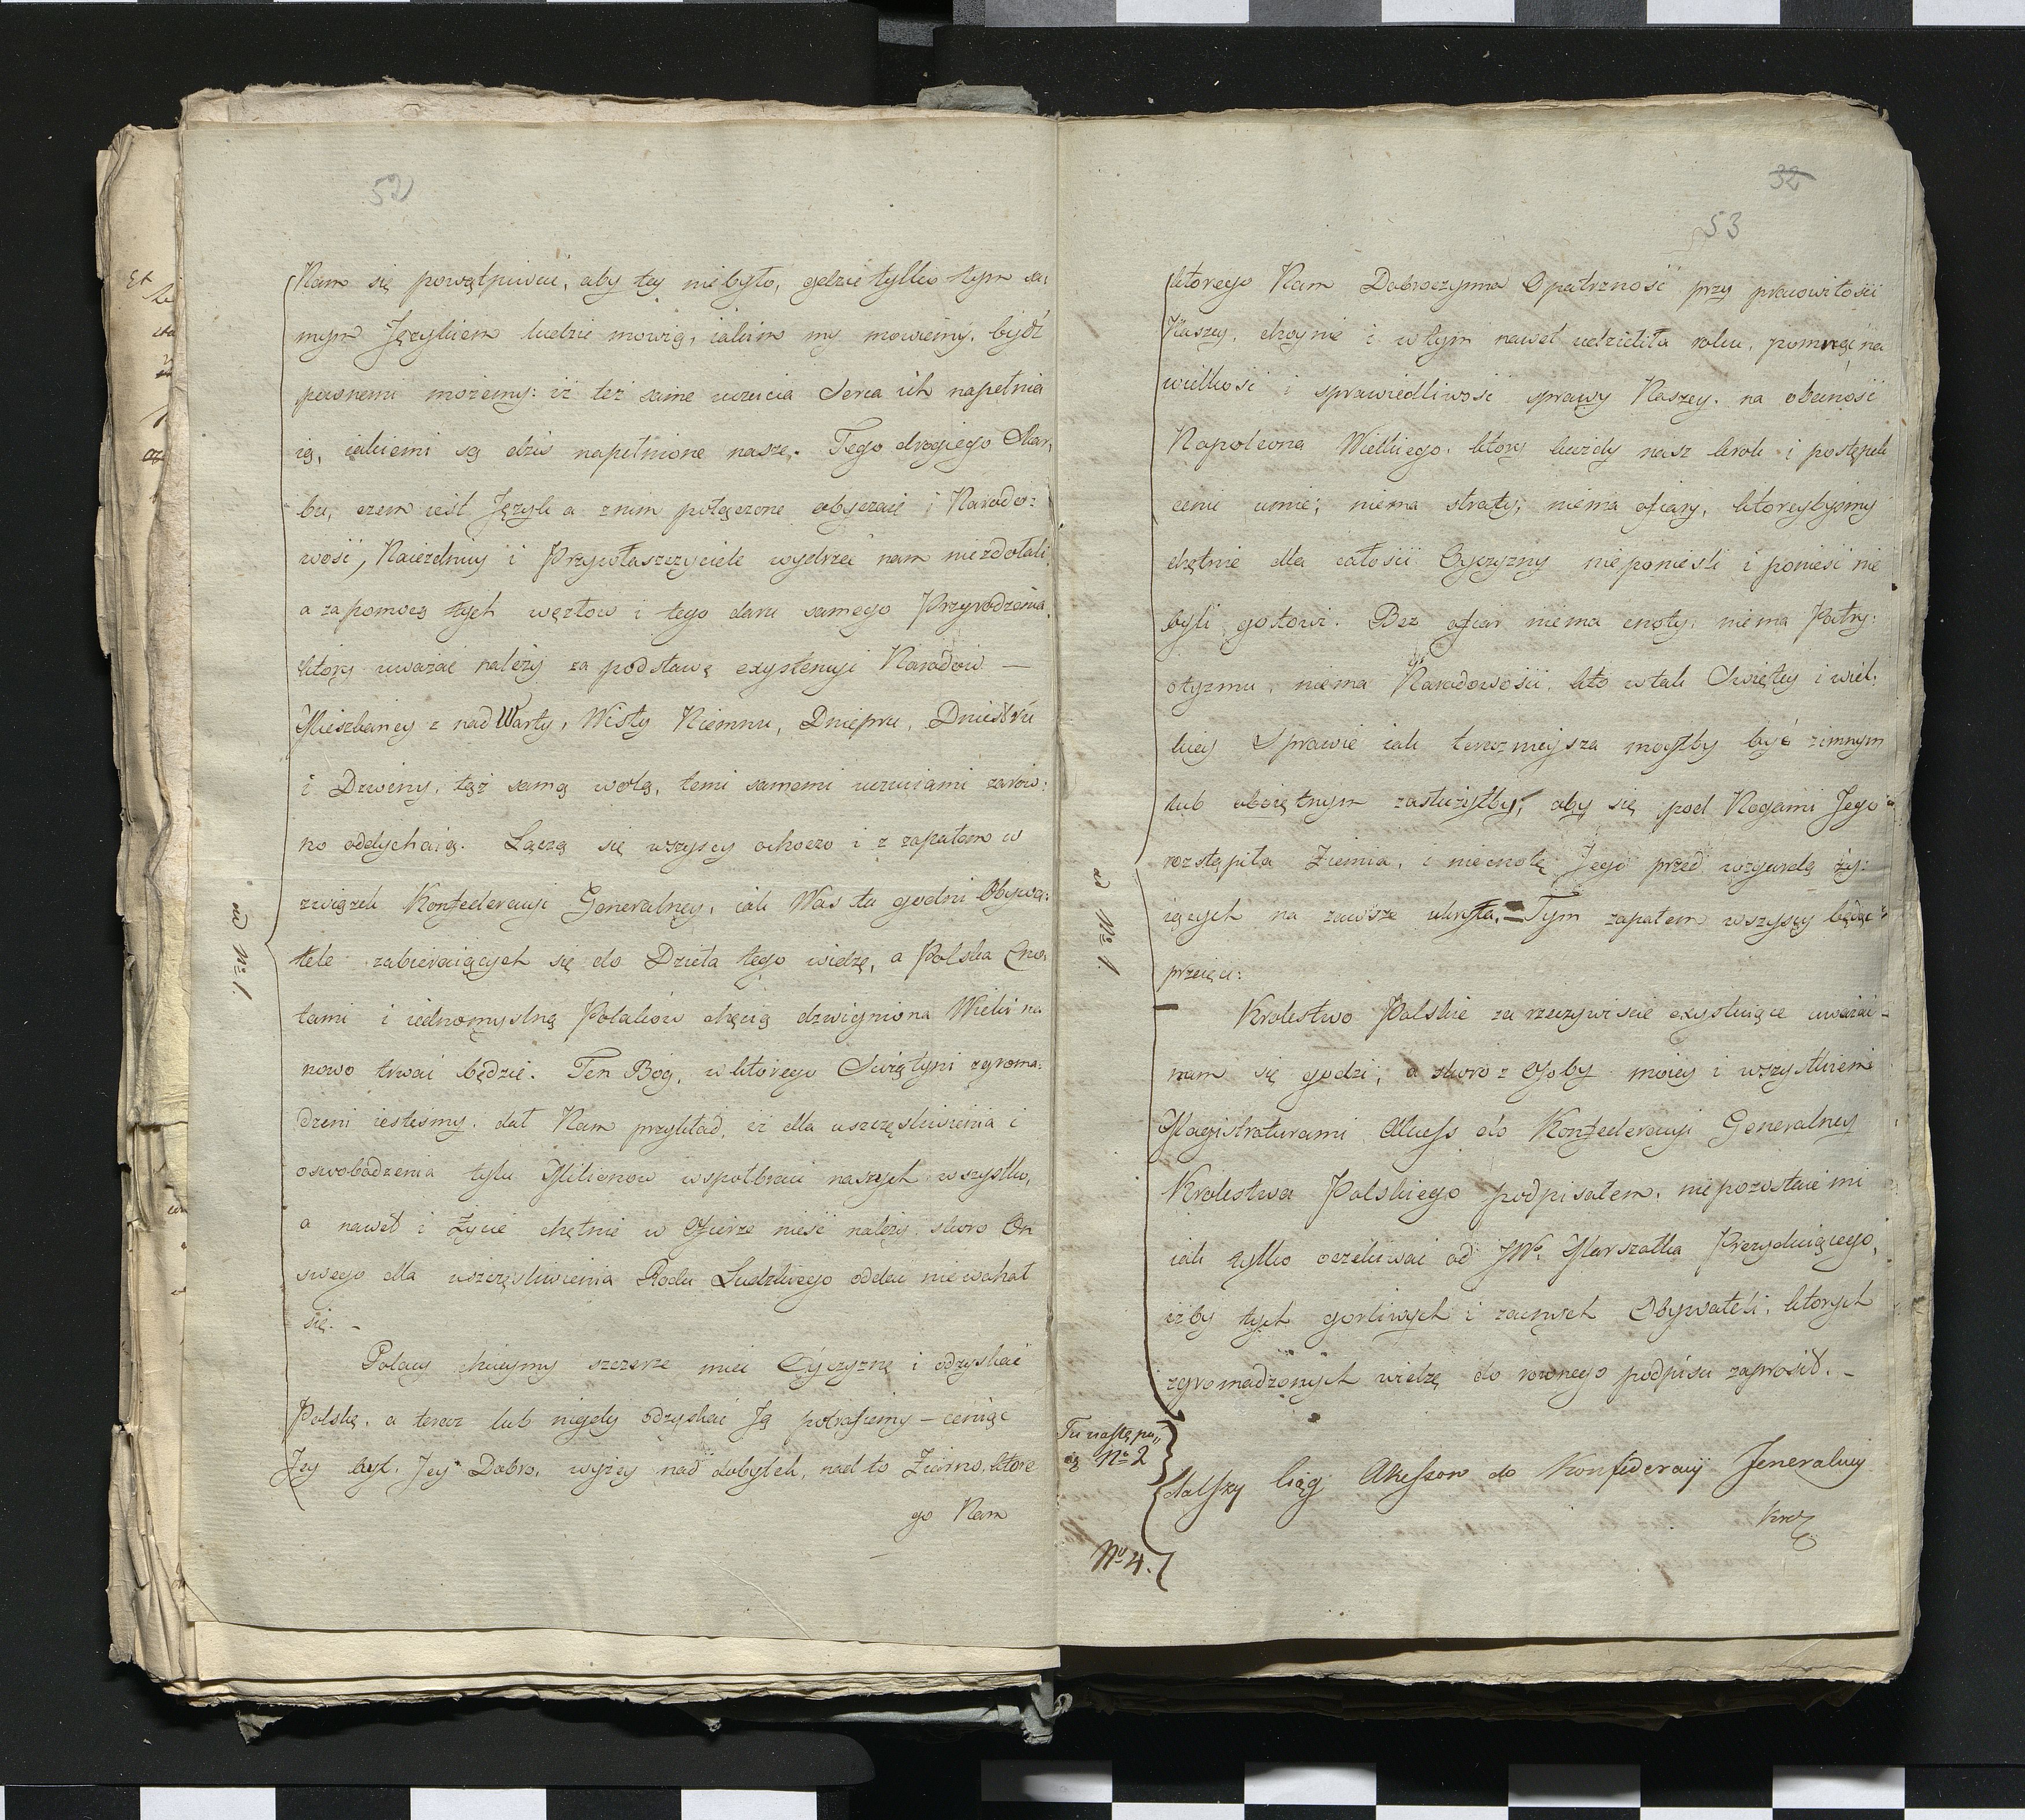 52
Nam się powątpiwać, aby tey niebyło, gdzie tylko tym sa:
mym Językiem ludzie mowią, iakim my mowiemy, bydź
pewnemi możemy: iż też same uczucia Serca ich napełnia
ią, iakiemi są dziś napełnione nasze. Tego drogiego Skar,
bu, czem iest Język a znim połączone obyczaie i Narodo:
wość, Naiezdnicy i Przywłaszczyciele wydrzeć nam niezdołali
a zapomocą tych węzłow i tego daru samego Przyrodzenia,
ktory uważać należy za podstawę exystencyi Narodow —
Mieszkańcy z nad Warty, Wisły Niemna, Dniepru, Dniestru
i Dzwiny, tąż samą wolą, temi samemi uczuciami zarow:
no oddychaią. Łączą się wszyscy ochoczo i z zapałem w
związek Konfederacyi Generalney, iak Was tu godni Obywa:
tele zabieraiących się do Dzieła tego widzę, a Polska Cno
tami i iednomyslną Polakow chęcią dzwigniona Wieki na
nowo trwać będzie. Ten Bog, w ktorego Swiątyni zgroma:
dzeni iestesmy, dał Nam przykład, iż dla uszczęśliwienia i
oswobodzenia tylu Milionow wspołbraci naszych wszystko,
a nawet i Życie chętnie w Ofierze nieść należy, skoro On
swego dla uszczęśliwienia Rodu Ludzkiego oddać niewahał
się. –
Polacy chcieymy szczerze mieć Oyczyznę i odzyskać
Polskę, a teraz lub nigdy odzyskać Ją potrafiemy – ceniąc
Jey byt, Jey Dobro, wyżey nad dobytek, nad to Ziarno, ktore
go Nam
ad Nº 1.
32
53
ktorego Nam Dobroczynna Opatrzność przy pracowitości
Naszey, choynie i w tym nawet udzieliła roku, pomnąc na
wielkość i sprawiedliwość sprawy Naszey, na obecność
Napoleona Wielkiego, ktory każdy nasz krok i postępek
cenić umie; niema straty, niema ofiary, ktoreybysmy
chętnie dla całości Oyczyzny nieponiesli i ponieść nie
byli gotowi. Bez ofiar niema cnoty, niema Patry:
otyzmu, niema Narodowości, kto w tak Swiętey i wiel:
kiey Sprawie iak teraznieysza mogłby być zimnym
lub oboiętnym zasłużyłby, aby się pod Nogami Jego
rozstąpiła Ziemia, i niecnotę Jego przed wzgardą ży:
iących na zawsze ukryła. – Tym zapałem wszyscy będąc
przeięci:
Krolestwo Polskie za rzeczywiscie exystuiące uważać –
nam się godzi, a skoro z Osoby moiey i wszystkiemi
Magistraturami Akcess do Konfederacyi Generalney
Krolestwa Polskiego podpisałem, niepozostaie mi
iak tylko oczekiwać od JWº Marszałka Prezyduiącego,
iżby tych gorliwych i zacnych Obywateli, ktorych
zgromadzonych widzę do rownego podpisu zaprosił. –
ad Nº 1.
Tu następu„
ią Nº 2
dalszy ciąg Akcessow do Konfederacyi Jeneralney
Kro
Nº 4.